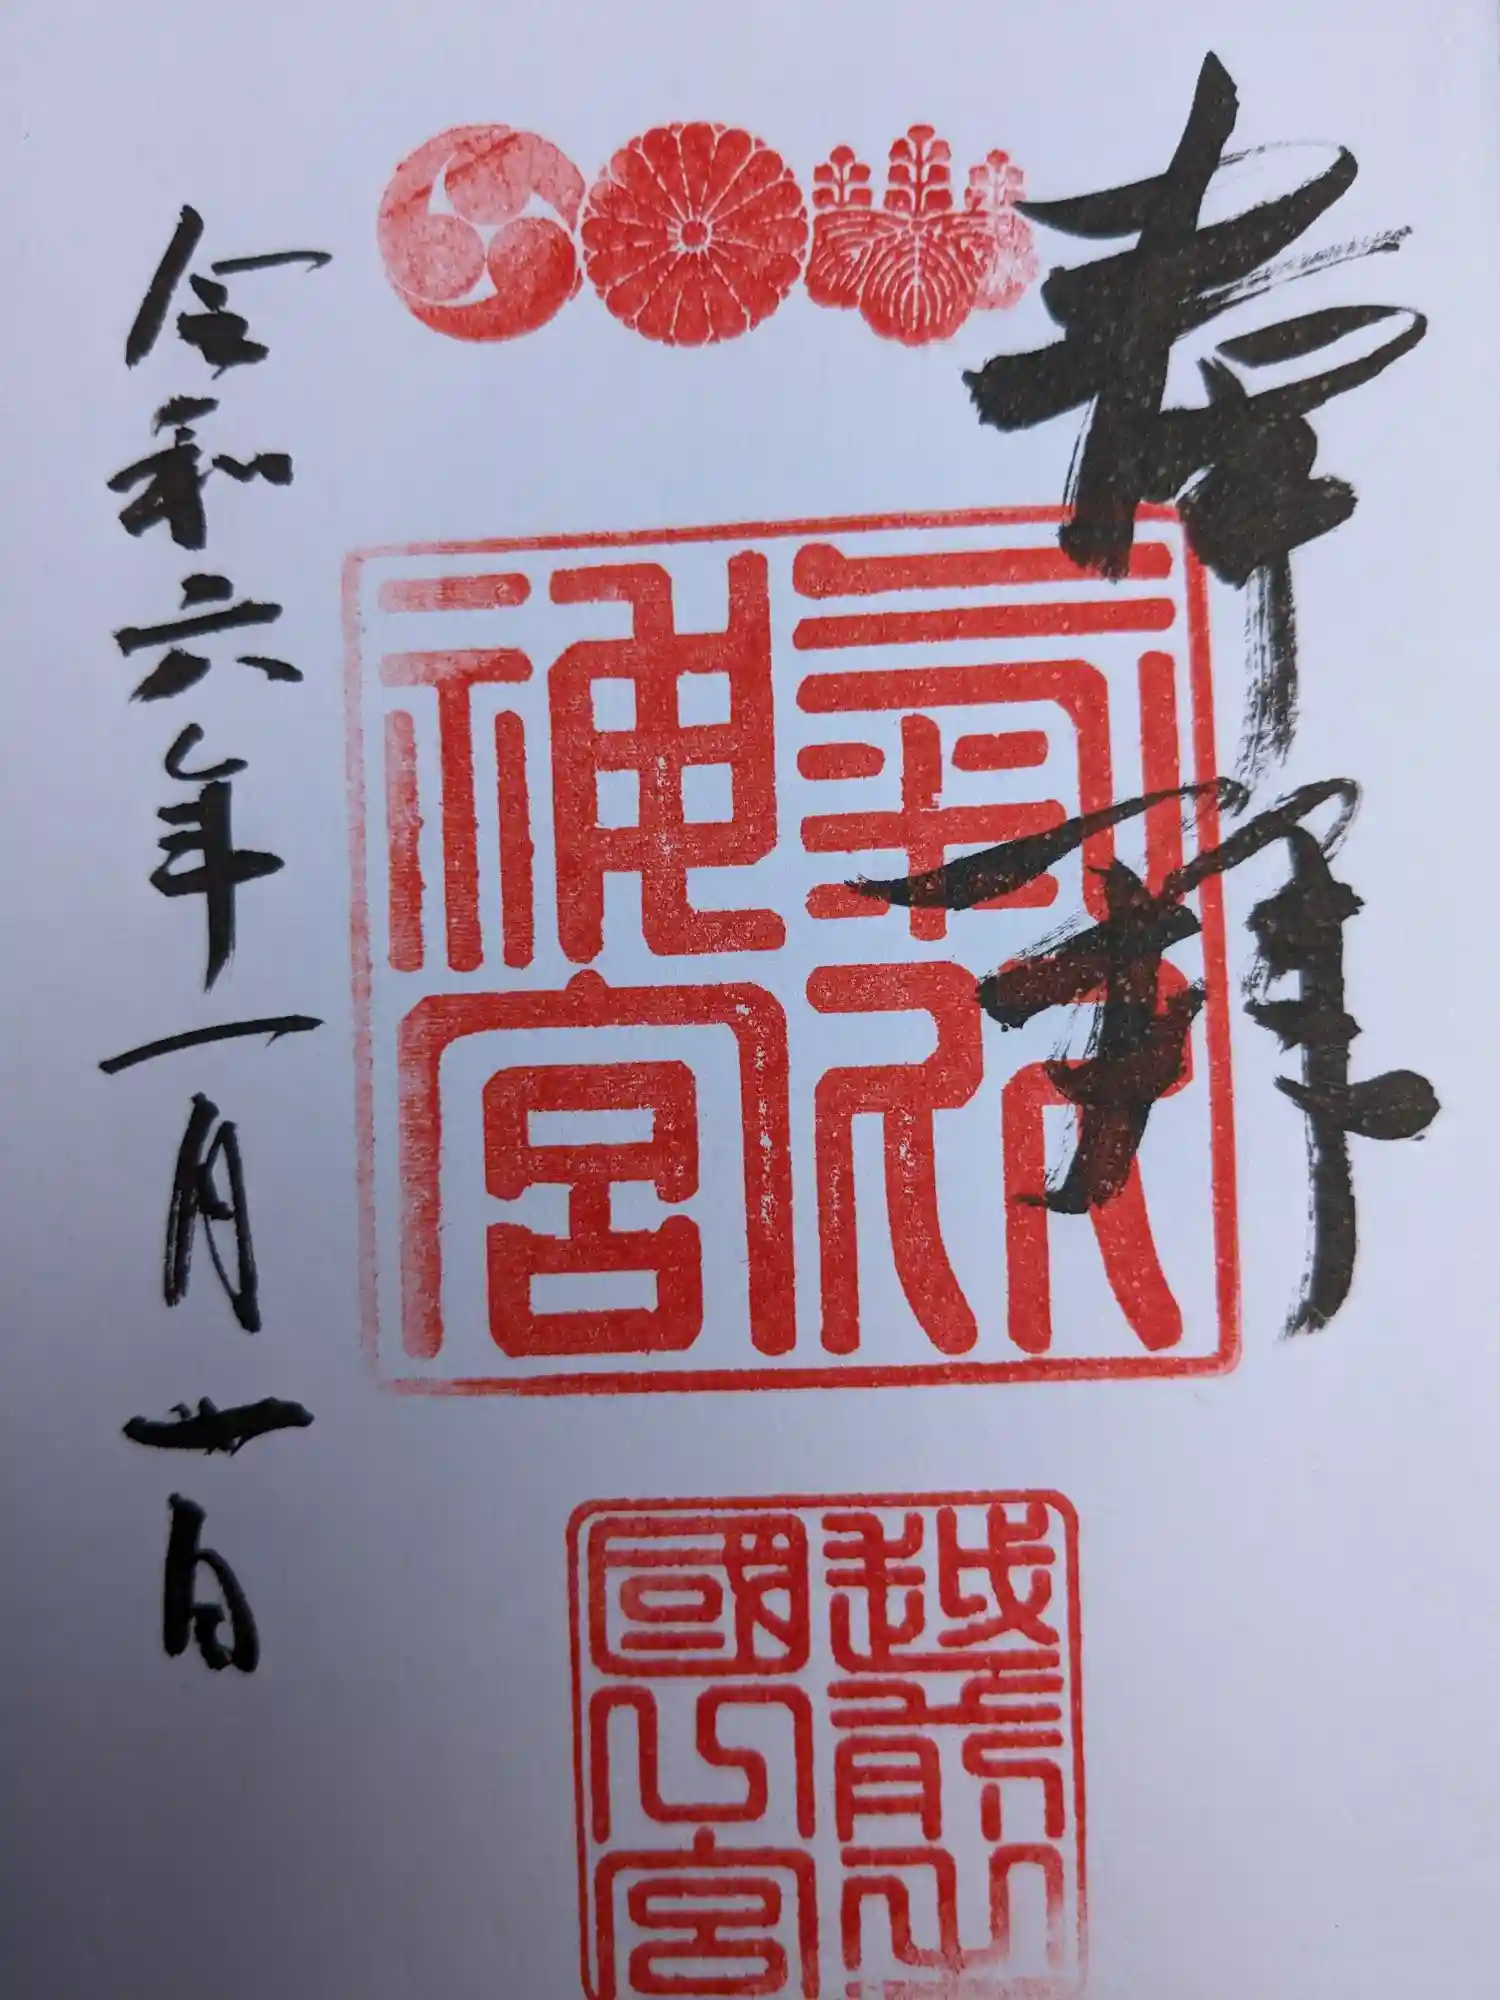 奉拝
氣比神宮
越前之國一宮
令和六年一月廿日